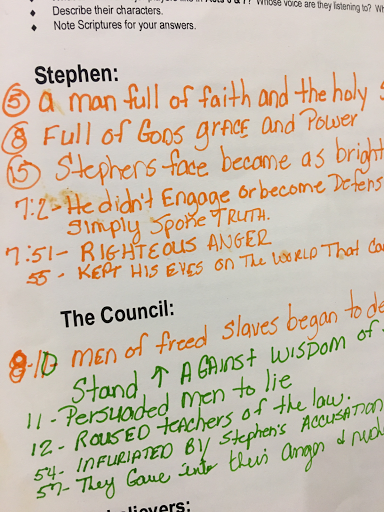 in Acts 6 & 7? Whose voice are they listening to?
Describe their characters.
Note Scriptures for your answers.
Stephen:
5 a man full of faith and the holy
8 Full of GODS grace and Power
15 Stephens face became as bright
7:2- He didn't Engage or become Defens
simply spoke TRUTH.
7:51- RIGHTEOUS ANGER
55 - KEPT HIS EYES on The WORLD That
The Council:
8-10 men of freed slaves began to de
Stand ↑ AGAINST WISDOM of
11 - Persuaded men to lie
12 - ROUSED teachers of the law.
54- INFURIATED BY Stephen's ACCUSATION
57- They Gave into their anger &